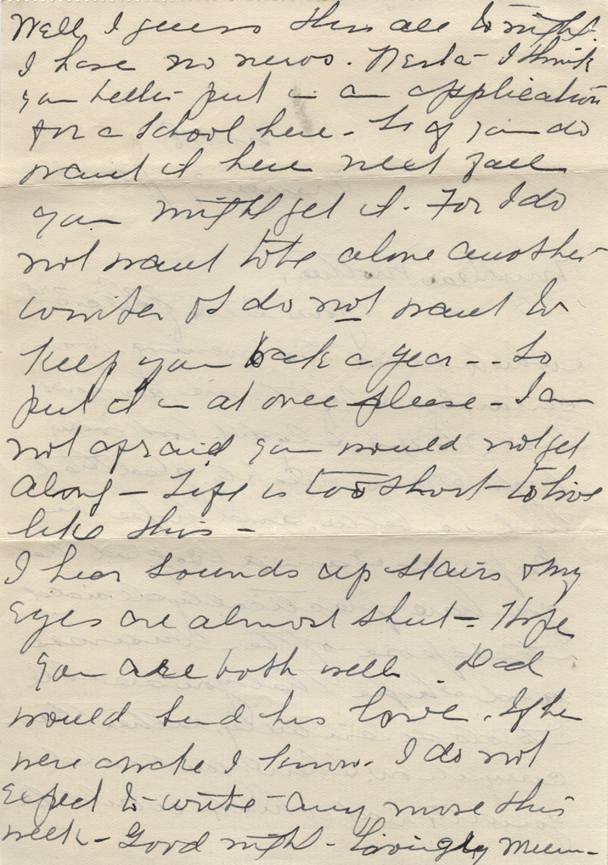 Well, I guess this all to-night.
I have no news. - I think
you better put in an application
for a School here - So if you do
want it here next fall
you might get it. For I do
not want to be alone another
winter & I do not want to
keep you back a year -- So
put it in at once please - I am
not afraid you would not get
along - Life is too short - to live
like this -
I hear sounds up stairs & my
eyes are almost shut - Hope
you are both well. Dad
would send his love. If he
were awake I know. I do not
expect to write - any more this
week - Good night - Lovingly Mum -